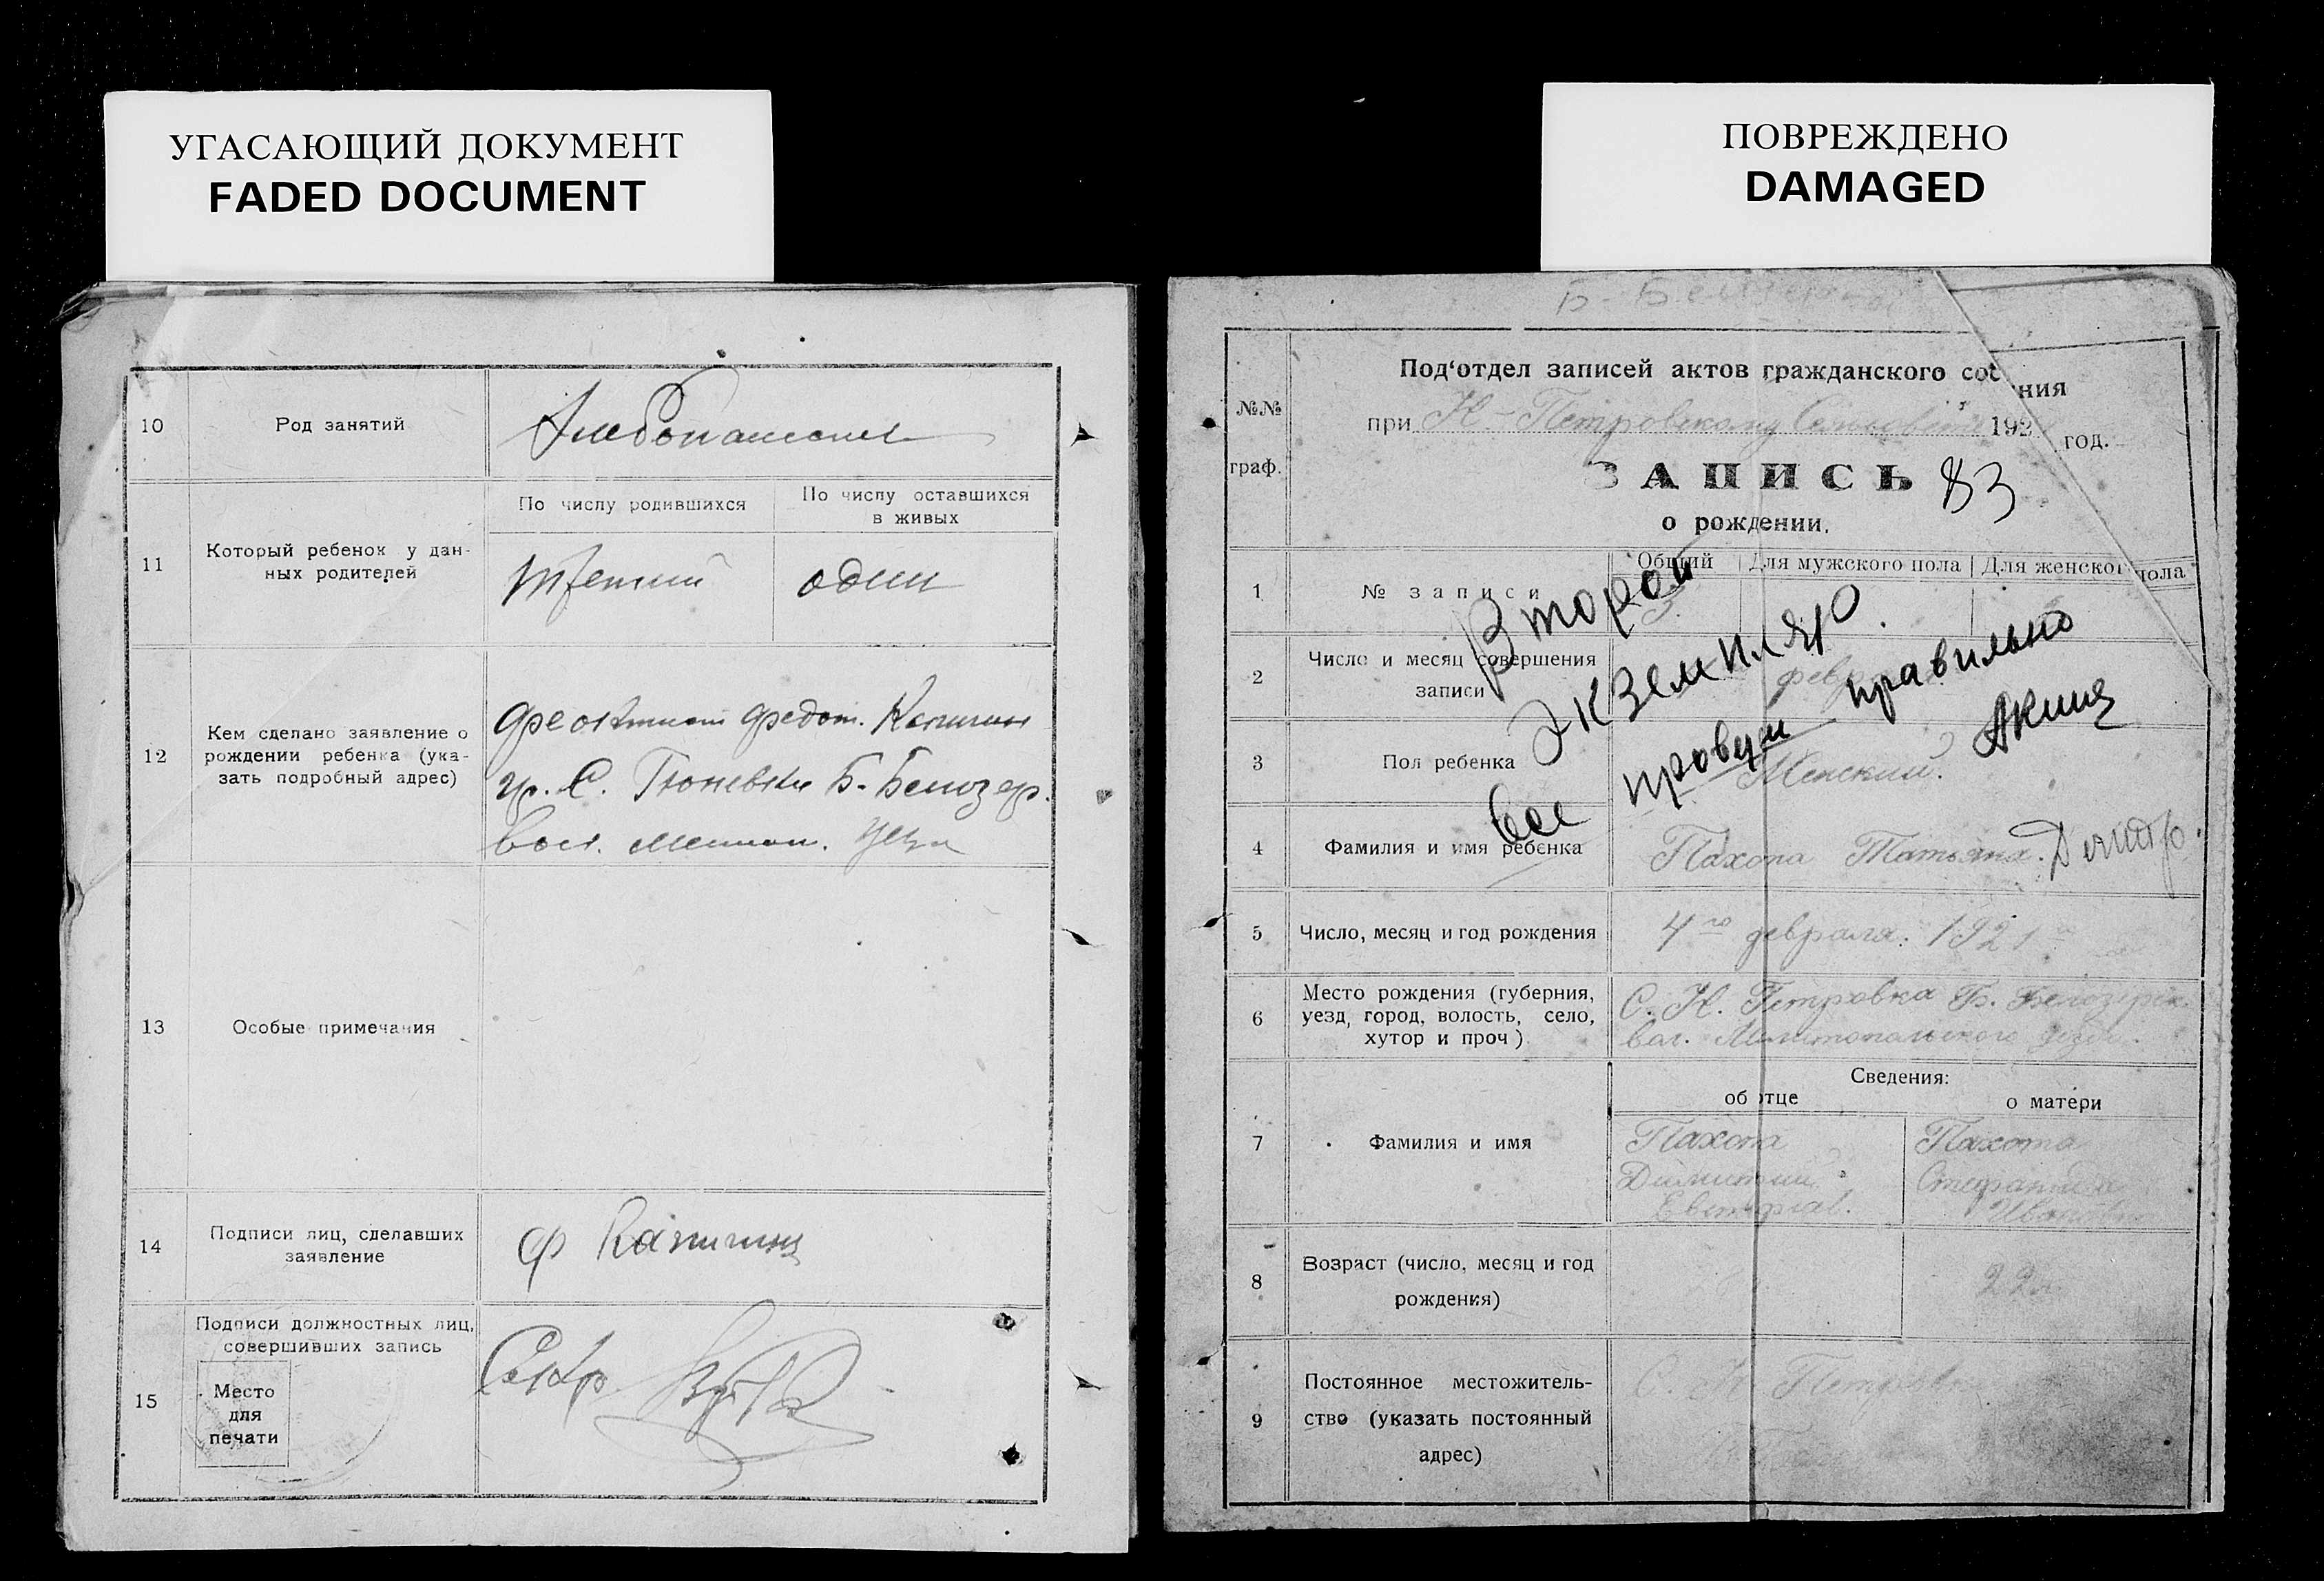 УГАСАЮЩИЙ ДОКУМЕНТ
FADED DOCUMENT
10
Род занятий
11
Который ребенок у дан-
ных родителей
По числу родившихся
По числу оставшихся
в живых
третий
один
12
Кем сделано заявление о
рождении ребенка (ука-
зать подробный адрес)
гр. С. Б. Белозер.
вол.
13
Особые примечания
14
Подписи лиц, сделавших
заявление
Ф
15
Подписи должностных лиц,
совершивших запись
Место
для
печати
Секр
ПОВРЕЖДЕНО
DAMAGED
№№
граф.
Под‘отдел записей актов гражданского сос ния
при Н.-Петровскому Сельсовете 192 год.
ЗАПИСЬ 83
о рождении.
1
№ записи
Общий
Для мужского пола
Для женского пола
3.
Второй
экземпляр.
все провер правильно
2
Число и месяц совершения
записи
3
Пол ребенка
Женский.
4
Фамилия и имя ребенка
Пахота Татьяна. Дмитр.
5
Число, месяц и год рождения
4го февраля. 1921
6
Место рождения (губерния,
уезд, город, волость, село,
хутор и проч)
С. Н. Петровка Б. Белозерск.
вол. Мелитопольского уезда.
Сведения:
об отце
о матери
7
Фамилия и имя
Пахота
Пахота
8
Возраст (число, месяц и год
рождения)
22
9
Постоянное местожитель-
ство (указать постоянный
адрес)
С. Н. Петровка